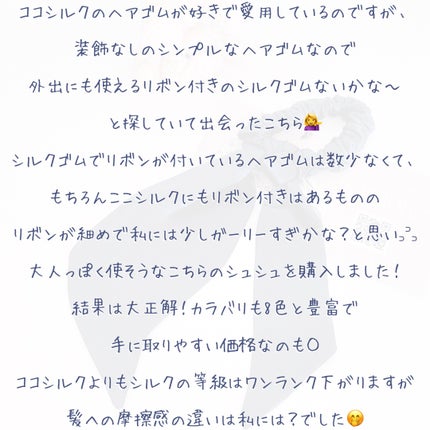 ココシルクのヘアゴムが好きで愛用しているのですが、
装飾なしのシンプルなヘアゴムなので
外出にも使えるリボン付きのシルクゴムないかな〜
と探していて出会ったこちら💁‍♀️
シルクゴムでリボンが付いているヘアゴムは数少なくて、
もちろんここシルクにもリボン付きはあるものの
リボンが細めで私には少しガーリーすぎかな?と思いつつ
大人っぽく使そうなこちらのシュシュを購入しました!
結果は大正解!カラバリも8色と豊富で
手に取りやすい価格なのも〇
ココシルクよりもシルクの等級はワンランク下がりますが
髪への摩擦感の違いは私には?でした🤭